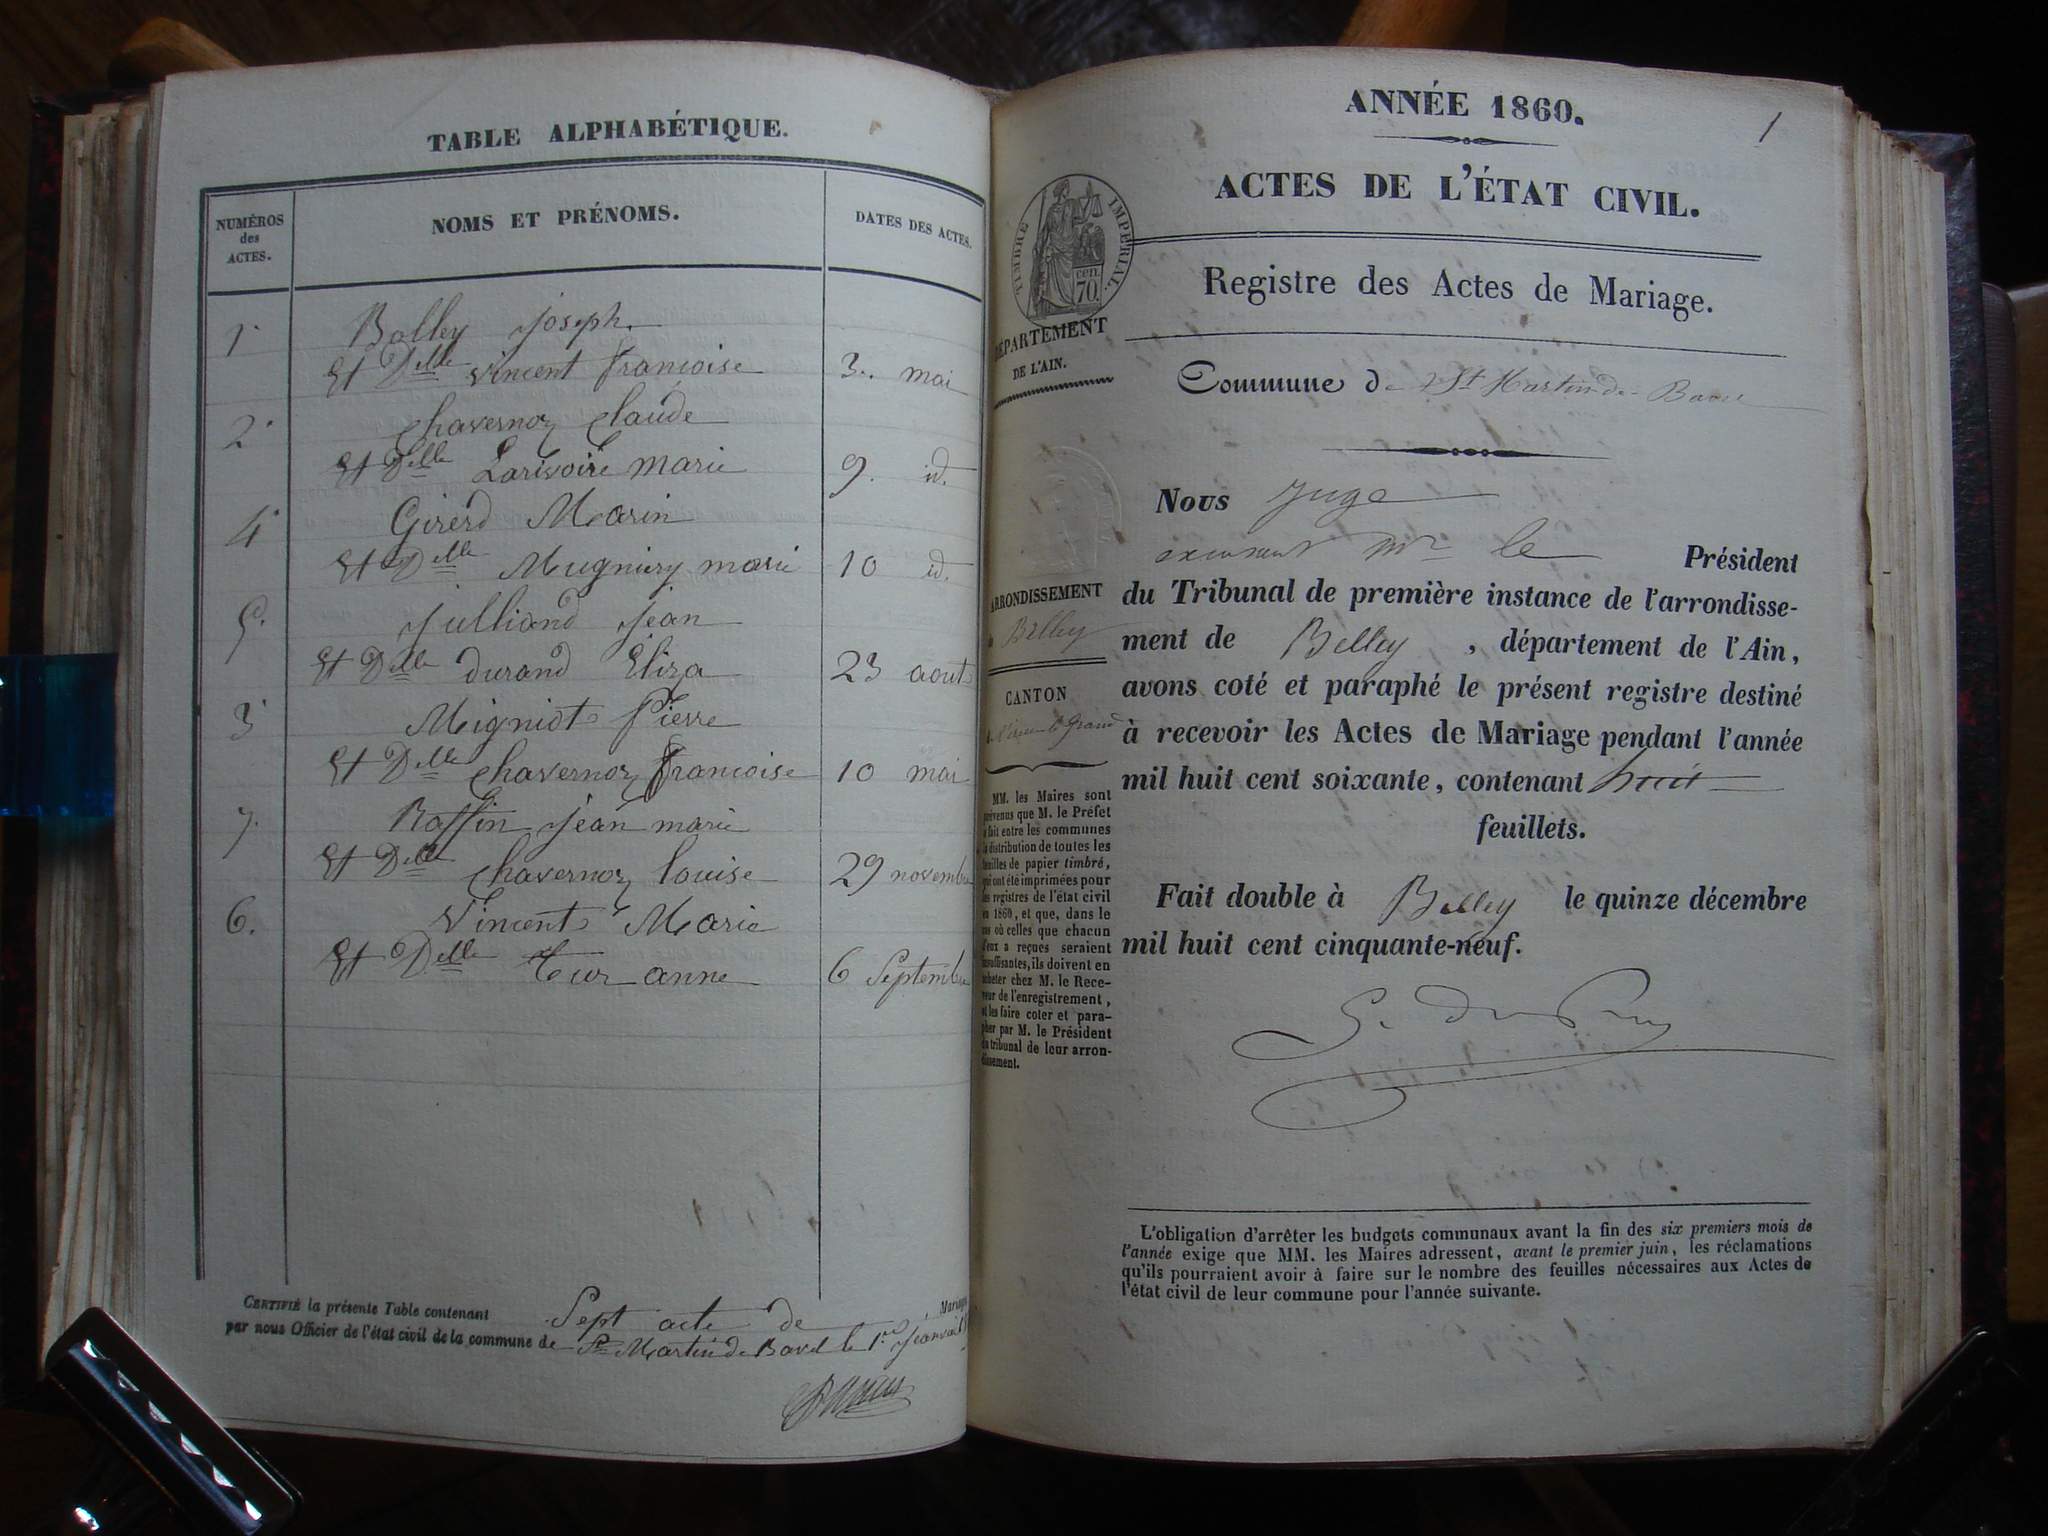 TABLE ALPHABÉTIQUE.
NUMÉROS
des
ACTES.
NOMS ET PRÉNOMS.
DATES DES ACTES.
1. Bolley Joseph
Et Delle Vincent françoise 3. mai
2. Chavernoz Claude
Et Delle Larivoire Marie 9. id.
4. Girerd Marin
Et Delle Mugniery marie 10 id.
5. Julliand Jean
Et Delle durand Eliza 23 aout
3. Migniot Pierre
Et Delle Chavernoz françoise 10 mai
7. Raffin Jean marie
Et Delle Chavernoz louise 29 novembre
6. Vincent Marie
Et Delle Cur anne 6 Septembre
CERTIFIÉ la présente Table contenant Sept acte de Mariage
par nous Officier de l'état civil de la commune de St Martin de Bavel le 1er Janvier
ANNÉE 1860.
1
ACTES DE L'ÉTAT CIVIL.
TIMBRE IMPÉRIAL.
CEN.
70.
Registre des Actes de Mariage.
DÉPARTEMENT
DE L'AIN.
Commune de St Martin-de-Bavel
Nous Juge
Mr le Président
du Tribunal de première instance de l'arrondisse-
ment de Belley , département de l'Ain,
avons coté et paraphé le présent registre destiné
à recevoir les Actes de Mariage pendant l'année
mil huit cent soixante, contenant huit
feuillets.
Fait double à Belley le quinze décembre
mil huit cent cinquante-neuf.
ARRONDISSEMENT
de Belley
CANTON
de Virieu le Grand
MM. les Maires sont
prévenus que M. le Préfet
a fait entre les communes
la distribution de toutes les
feuilles de papier timbré,
qui ont été imprimées pour
les registres de l'état civil
en 1860, et que, dans le
cas où celles que chacun
d'eux a reçues seraient
insuffisantes, ils doivent en
acheter chez M. le Rece-
veur de l'enregistrement,
et les faire coter et para-
pher par M. le Président
du tribunal de leur arron-
dissement.
L'obligation d'arrêter les budgets communaux avant la fin des six premiers mois de
l'année exige que MM. les Maires adressent, avant le premier juin, les réclamations
qu'ils pourraient avoir à faire sur le nombre des feuilles nécessaires aux Actes de
l'état civil de leur commune pour l'année suivante.